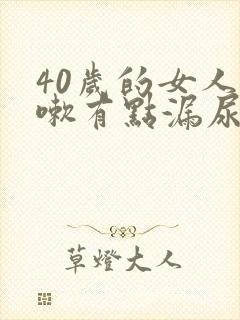 40歲的女人
嗽有點漏尿
草燈大人